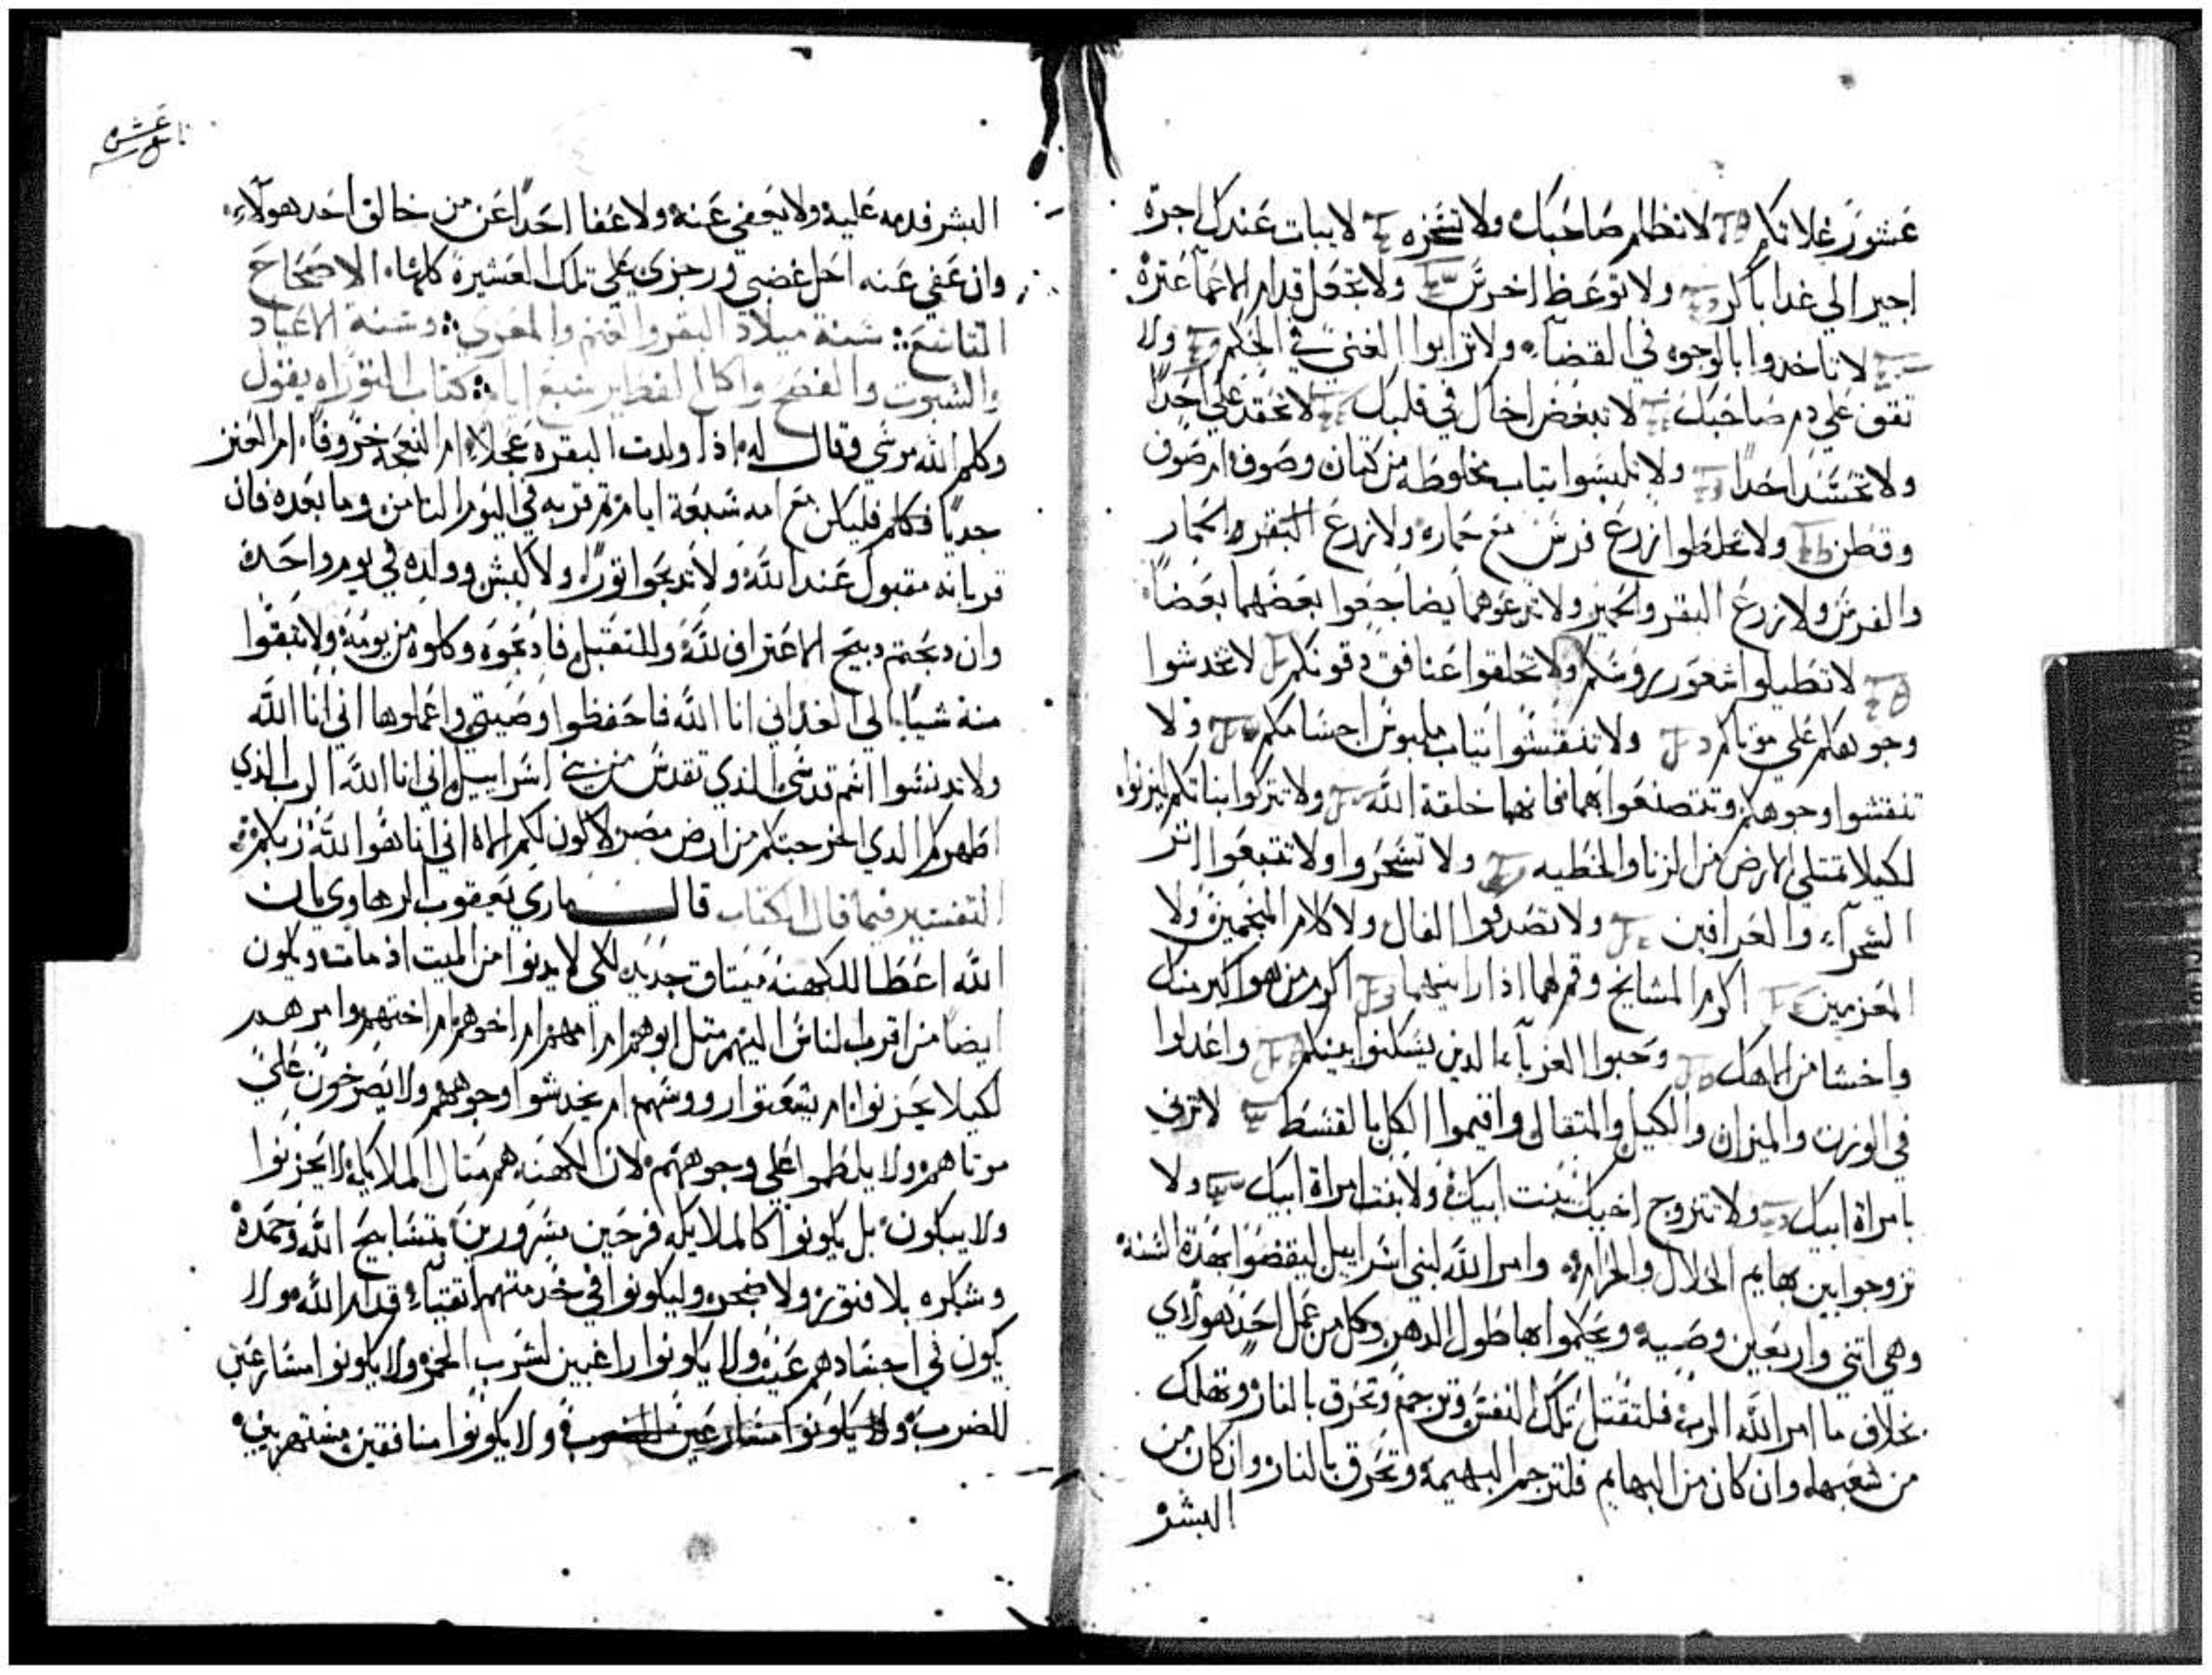 عشور غلاتكم لا تظلم صاحبك ولا تسخره لا يبات عندك اجرة
اجير الي غدا باكر ولا توعظ اخرس ولا تجعل قدام الاعما عترة
لا تاخدوا بالوجوه في القضآء ولا ترابوا الغني في الحكم ولا
تقف علي دم صاحبك لا تبغض اخاك في قلبك لا تحقد علي احدًا
ولا تحسد احدًا ولا تلبسوا تياب مخلوطه من كتان وصوف ام صوف
وقطن ولا تخلطوا زرع فرس مع حماره ولا زرع البقر والحمار
والفرس ولا زرع البقر والحمير ولا تدعوهما يضاجعوا بعضهما بعضًا
لا تطيلوا شعور روسكم ولا تحلقوا عنافق دقونكم لا تخدشوا
وجوهكم علي موتاكم ولا تنقشوا تياب ملبوس اجسامكم ولا
تنقشوا وجوهكم وتتصنعوا بهما فانهما خلقة الله ولا تتركوا بناتكم ليزنوا
لكيلا تمتلي الارض من الزنا والخطيه ولا تسحروا ولا تتبعوا اتر
السحرآء والعرافين ولا تصدقوا الفال ولا كلام المنجمين ولا
المعزمين اكرم المشايخ وقم لهما اذا رايتهما اكرم من هو اكبر منك
واخشا من الاهك وحبوا الغربآء الدين يسكنوا بينكم واعدلوا
في الوزن والميزان والكيل والمتقال واقيموا الكل بالقسط لا تزني
بامراة ابيك ولا تتزوج اختك بنت ابيك ولا بنت امراة ابيك ولا
تزوجوا بين بهايم الحلال والحرام وامر الله لبني اسراييل ليقضوا بهدة السنة
وهي اتني واربعين وصية ويحكموا بها طول الدهر وكل من عمل احد هولاي
بخلاف ما امر الله الرب فلتقتل تلك النفس وترجم وتحرق بالنار وتهلك
من شعبها وان كان من البهايم فلترجم البهيمة وتحرق بالنار وان كان من
البشر
تاسع عشره
البشر فدمه عليه ولا يعفي عنه ولا عفا احدًا عن من خالف احد هولاء
وان عفي عنه احل غضبي ورجزي علي تلك العشيرة كلها الاصحاح
التاسع سنة ميلاد البقر والغنم والمعزي وسنة الاعياد
والسبوت والفصح واكل الفطير سبع ايام كتاب التوراه يقول
وكلم الله موسي وقال له اذا ولدت البقره عجلا ام النعجه خروفا ام العنز
جديًا فليكن مع امه سبعة ايام تم قربه في اليوم التامن وما بعده فان
قربانه مقبول عند الله ولا تدبحوا تورًا ولا كبش وولده في يوم واحدة
وان دبحتم دبيح الاعتراف لله وللتقبل فادبحوه وكلوه من يومه ولا تبقوا
منة شيًا الي الغد اني انا الله فاحفظوا وصيتي واعملوها اني انا الله
ولا تدنسوا اسم قدسي الذي تقدس من بني اسراييل اني انا الله الرب الذي
اطهركم الدي اخرجتكم من ارض مصر لاكون لكم الاه اني انا هوا الله ربكم
التفسير فيما قال الكتاب قال ماري يعقوب الرهاوي بان
الله اعطا للكهنة ميتاق جديد لكي لا يدنوا من الميت اذ مات ويكون
ايضا من اقرب الناس اليهم متل ابوهم ام امهم ام اخوهم ام اختهم وامرهم
لكيلا يحزنوا ام يشعتوا رووسهم ام يخدشوا وجوههم ولا يصرخون علي
موتاهم ولا يلطموا علي وجوههم لان الكهنة هم متال الملايكه لا يحزنوا
ولا يبكون بل يكونوا كالملايكه فرحين مسرورين بتسابيح الله وحمده
وشكره بلا فتور ولا ضجر وليكونوا في خدمتهم اتقياء قدام الله ولا
يكون في اجسادهم عيب ولا يكونوا راغبين لشرب الخمر ولا يكونوا مسارعين
للضرب ولا يكونوا مسارعين للضرب ولا يكونوا منافقين مستهزيين